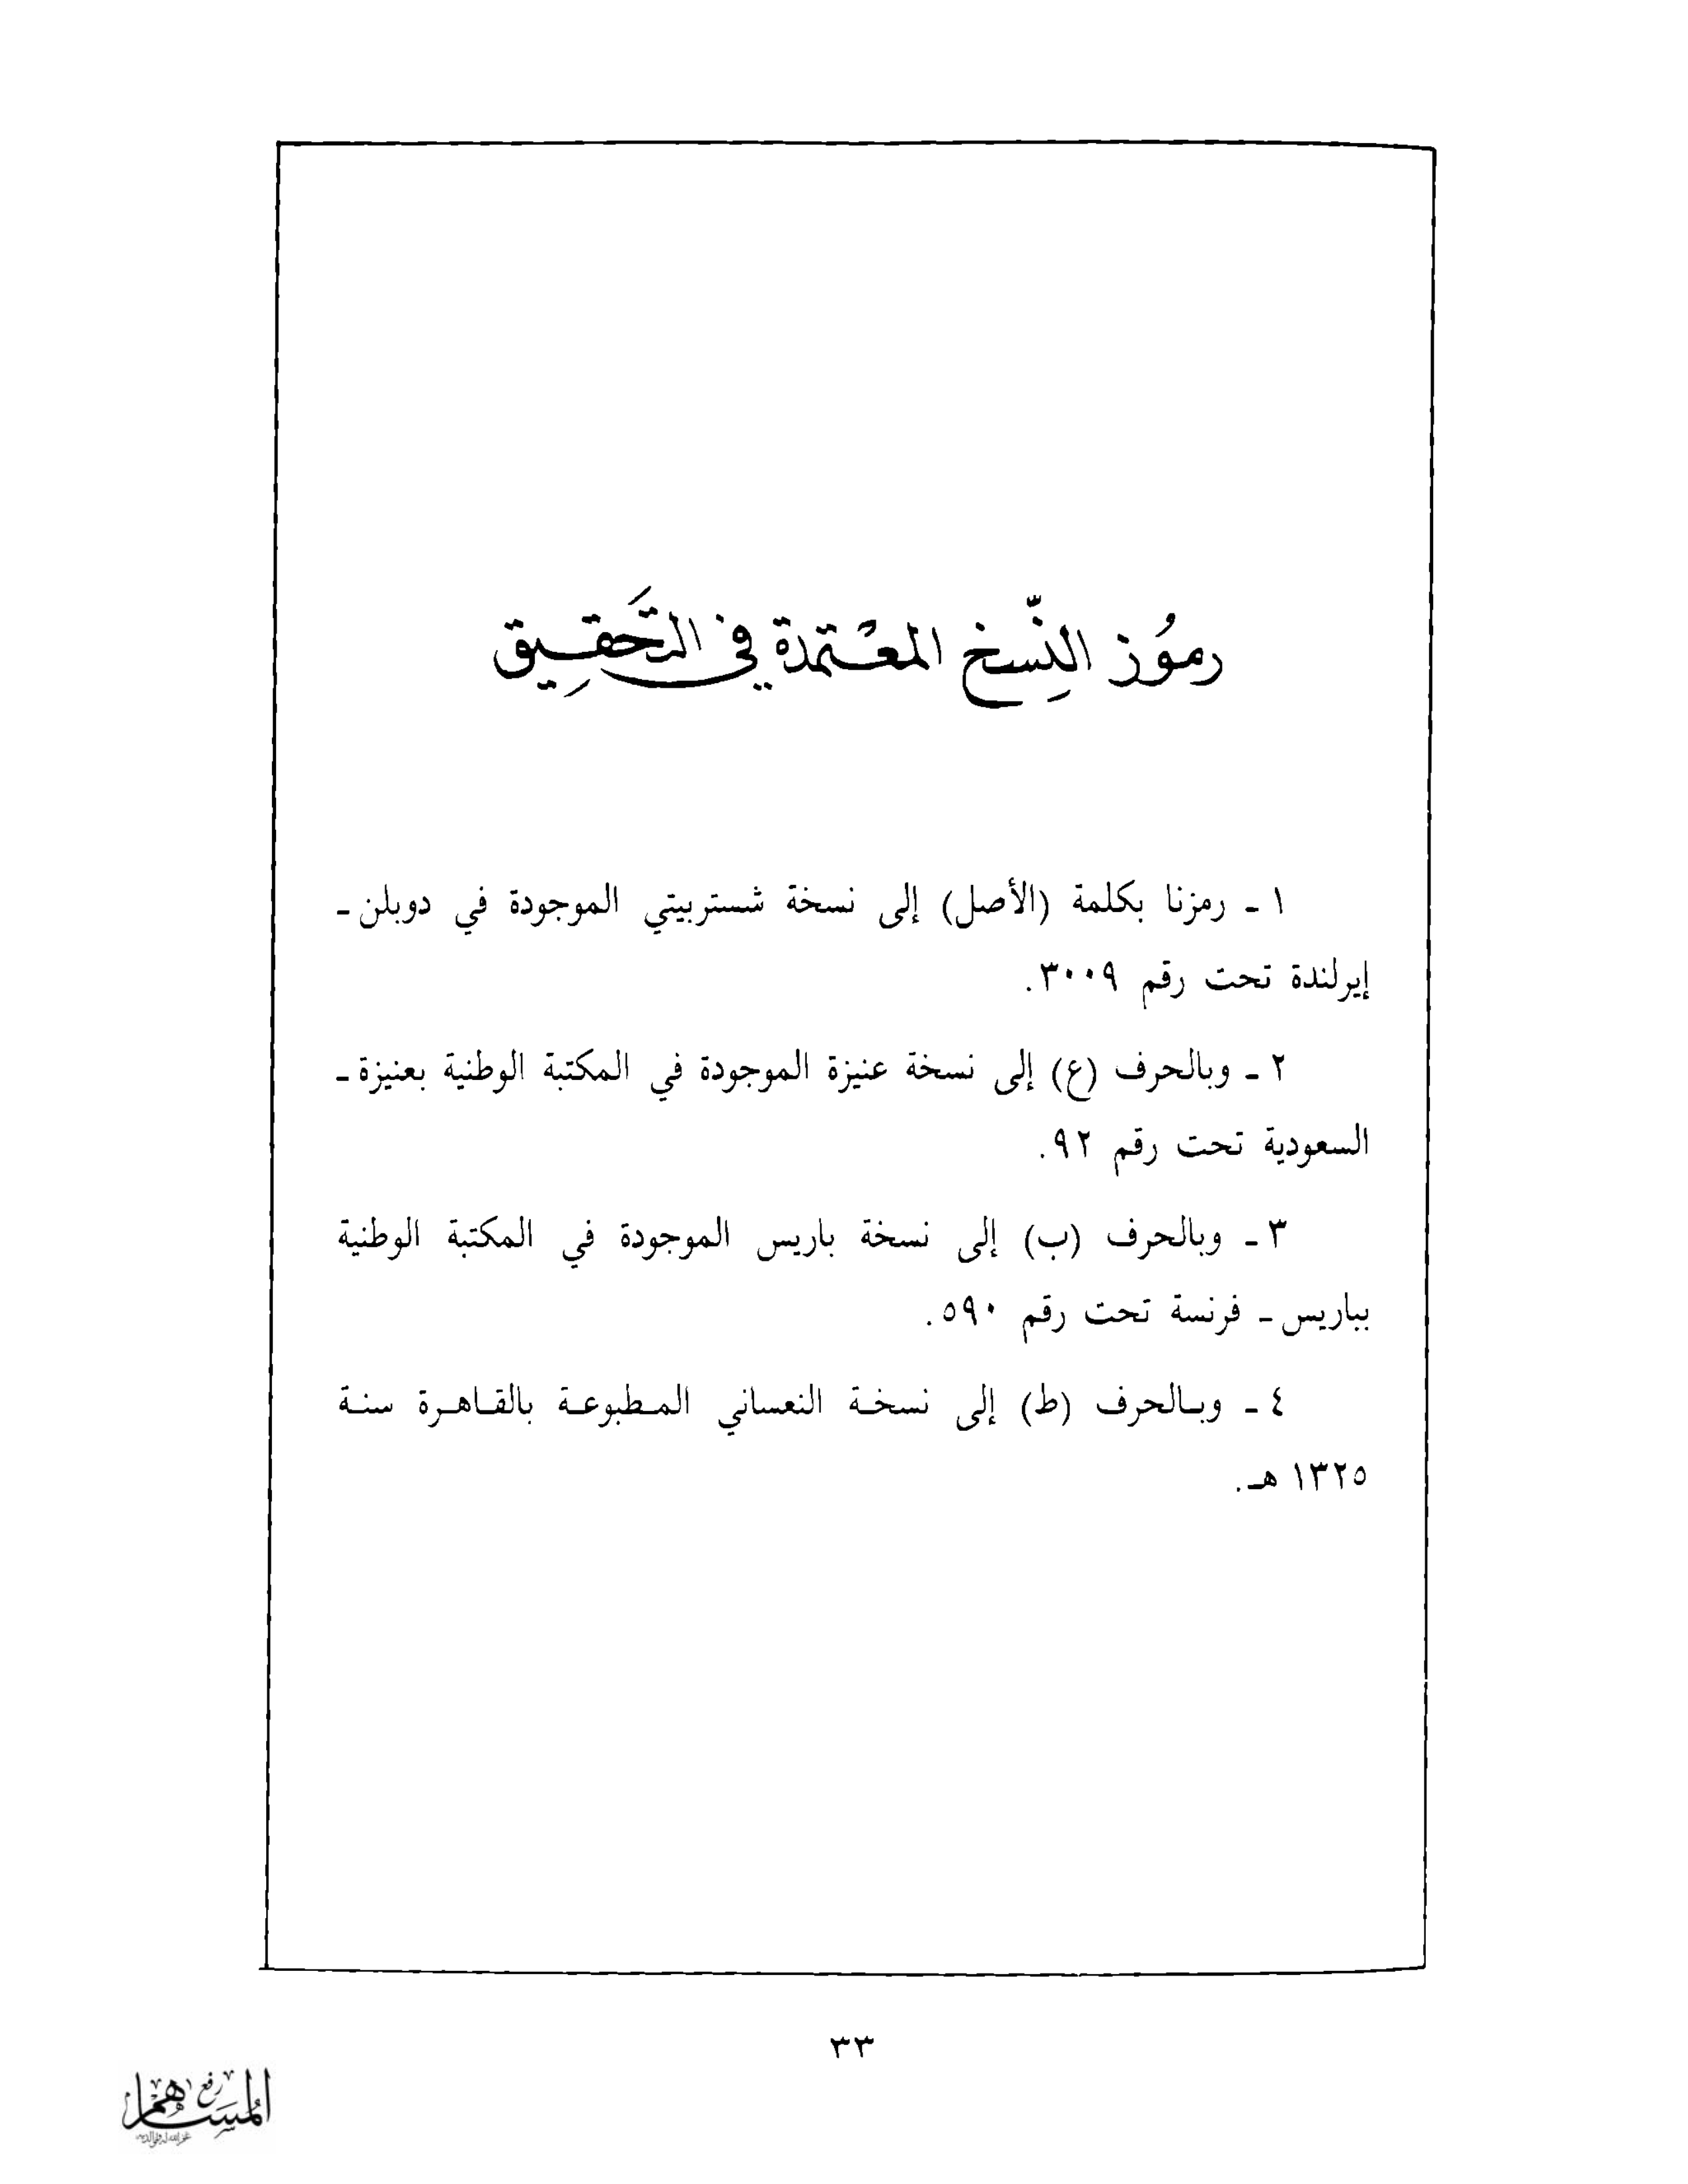 رموُز النِّسخ المعْتمدة في التَحقِيق
١ - رمزنا بكلمة (الأصل) إلى نسخة شستربيتي الموجودة في دوبلن -
إيرلندة تحت رقم ٣٠٠٩.
٢ - وبالحرف (ع) إلى نسخة عنيزة الموجودة في المكتبة الوطنية بعنيزة -
السعودية تحت رقم ٩٢.
٣ - وبالحرف (ب) إلى نسخة باريس الموجودة في المكتبة الوطنية
بباريس - فرنسة تحت رقم ٥٩٠.
٤ - وبالحرف (ط) إلى نسخة النعساني المطبوعة بالقاهرة سنة
١٣٢٥ هـ.
٣٣
رفع
المساهم